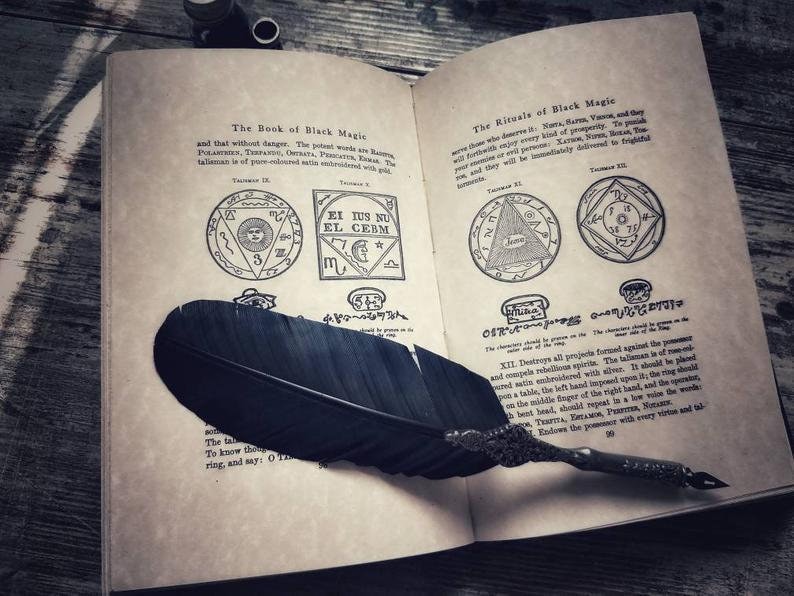 The Book of Black Magic
and that without danger. The potent words are RADITUS,
POLASTRIEN, TERPANDU, OSTRATA, PERICATUR, ERMAS. The
talisman is of puce-coloured satin embroidered with gold.
TALISMAN IX.
TALISMAN X.
3
EI IUS NU
EL CEBM
7
should be graven on the
of the ring.
The
To know
ring, and say: O
The Rituals of Black Magic
serve those who deserve it: NISTA, SAPER, VISNOS, and they
will forthwith enjoy every kind of prosperity. To punish
your enemies or evil persons: XATROS, NIFER, ROXAS, TOS-
and they will be immediately delivered to frightful
torments.
TALISMAN XI.
TALISMAN XII.
Jeova
Mitra
The characters should be graven on the
outer side of the ring.
The characters should be graven on the
inner side of the Ring.
XII. Destroys all projects formed against the possessor
and compels rebellious spirits. The talisman is of rose-col-
oured satin embroidered with silver. It should be placed
upon a table, the left hand imposed upon it; the ring should
on the middle finger of the right hand, and the operator,
bent head, should repeat in a low voice the words:
TERPITA, ESTAMOS, PERFITER, NOTARIN.
Endows the possessor with every virtue and tal-
99